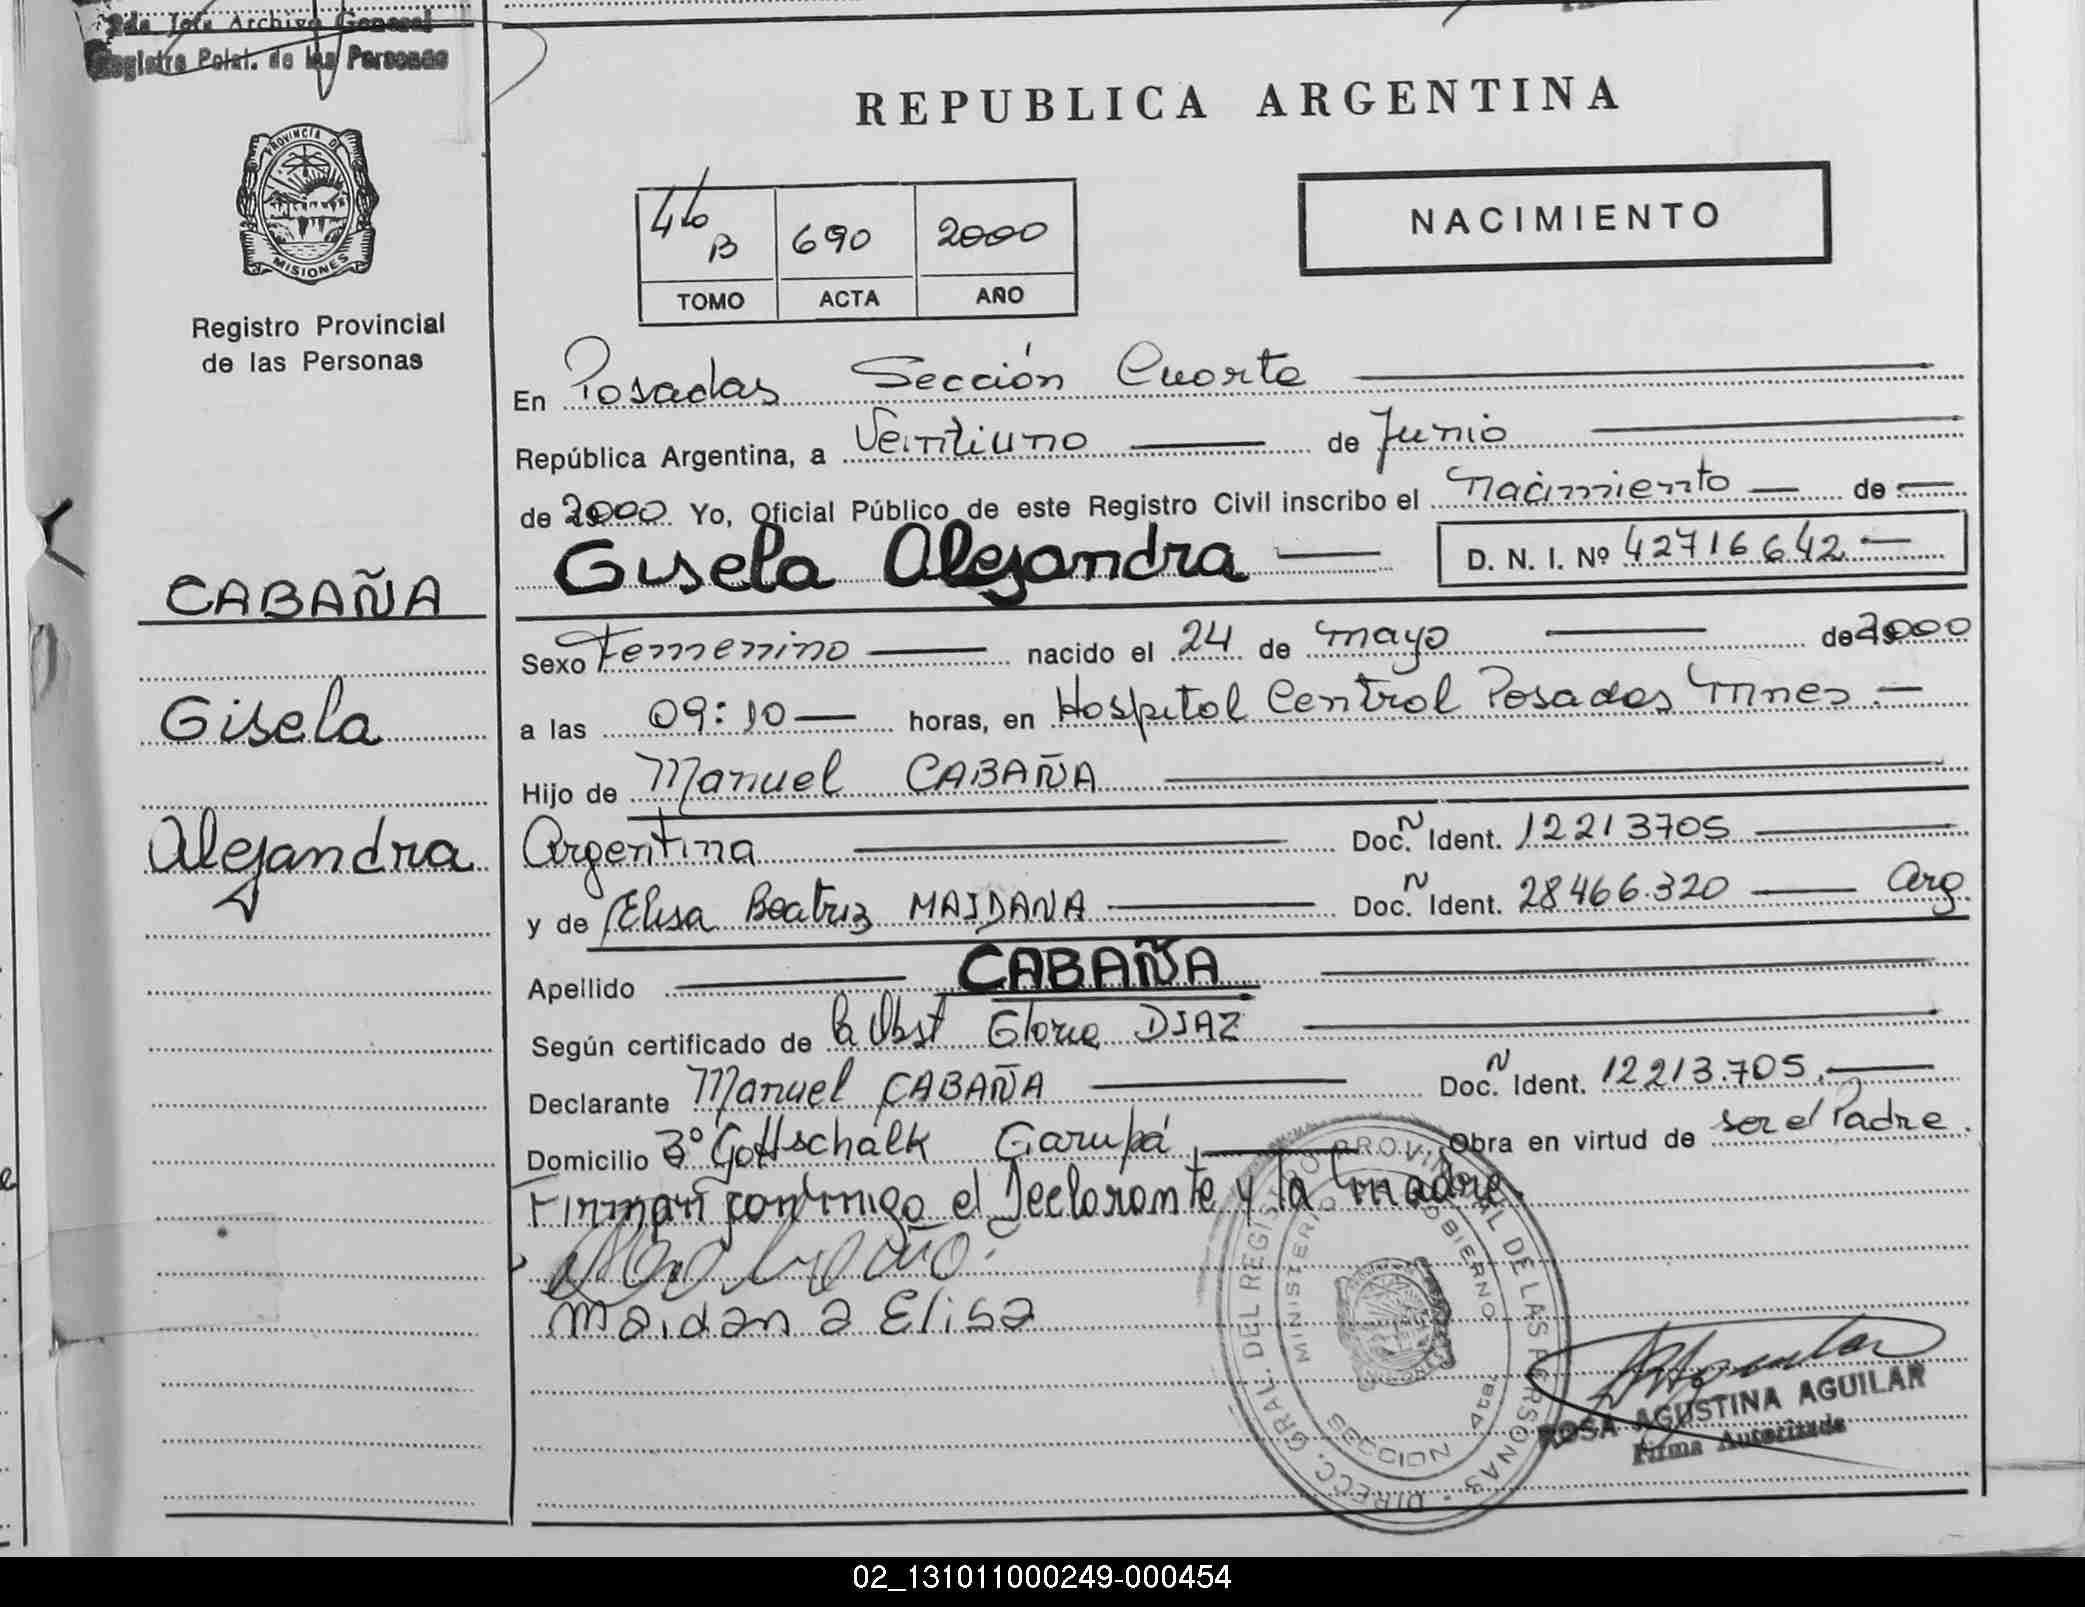 Jefe Archivo General
Registro Pcial. de las Personas
PROVINCIA DE
MISIONES
Registro Provincial
de las Personas
CABAÑA
Gisela
Alejandra
REPUBLICA ARGENTINA
NACIMIENTO
4to B 690 2000
TOMO ACTA AÑO
En Posadas Sección Cuarta
República Argentina, a Veintiuno de Junio
de 2000 Yo, Oficial Público de este Registro Civil inscribo el nacimiento de
Gisela Alejandra D. N. I. Nº 42716642
Sexo Femenino nacido el 24 de mayo de 2000
a las 09:10 horas, en Hospital Central Posadas Mnes.
Hijo de Manuel CABAÑA
Argentina Doc. N Ident. 12213705
y de Elisa Beatriz MAIDANA Doc. N Ident. 28466.320 Arg.
Apellido CABAÑA
Según certificado de la Obst Gloria DIAZ
Declarante Manuel CABAÑA Doc. N Ident. 12213.705.
Domicilio Bº Gottschalk Garupá Obra en virtud de ser el Padre.
Firman conmigo el Declarante y la madre.
Maidana Elisa
DIRECC. GRAL. DEL REGISTRO PROVINCIAL DE LAS PERSONAS
MINISTERIO GOBIERNO
SECCION 4ta.
ROSA AGUSTINA AGUILAR
Firma Autorizada
02_131011000249-000454